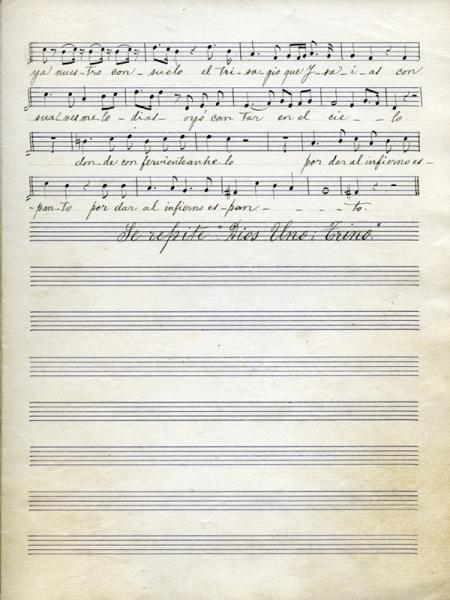 ya nues-tro con-suelo el tri-sa-gio que Y-sa-i-as con
suaves me-lo-dias- oyó can tar en el cie-lo
don-de con fervienteanhelo por dar al infierno es-
-pan-to por dar al infierno es-pan---to.
Se repite "Dios Uno i Trino."